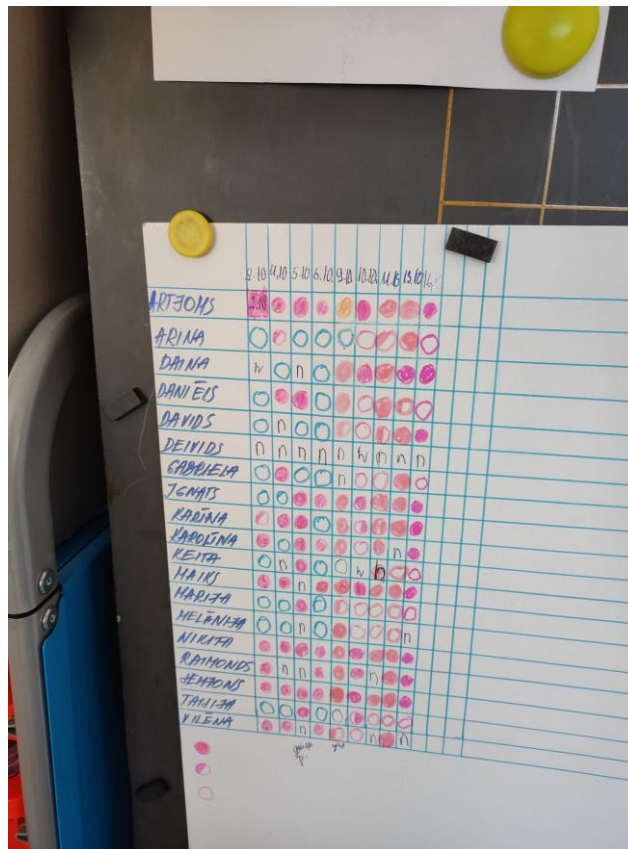 2.10 4.10 5.10 6.10 9.10 10.10 11.10 13.10 16.
ARTJOMS 2.10
ARINA
DAINA n n
DANIĒLS
DAVIDS n
DEIVIDS n n n n n n n n n
GABRIELA n
IGNATS
KARĪNA
KAROLĪNA n
KEITA n n n
MAIKS n
MARIJA
MELĀNIJA n n
NIKITA
RAIMONDS n n n
SEMJONS
TAISIJA
VILENA n n n